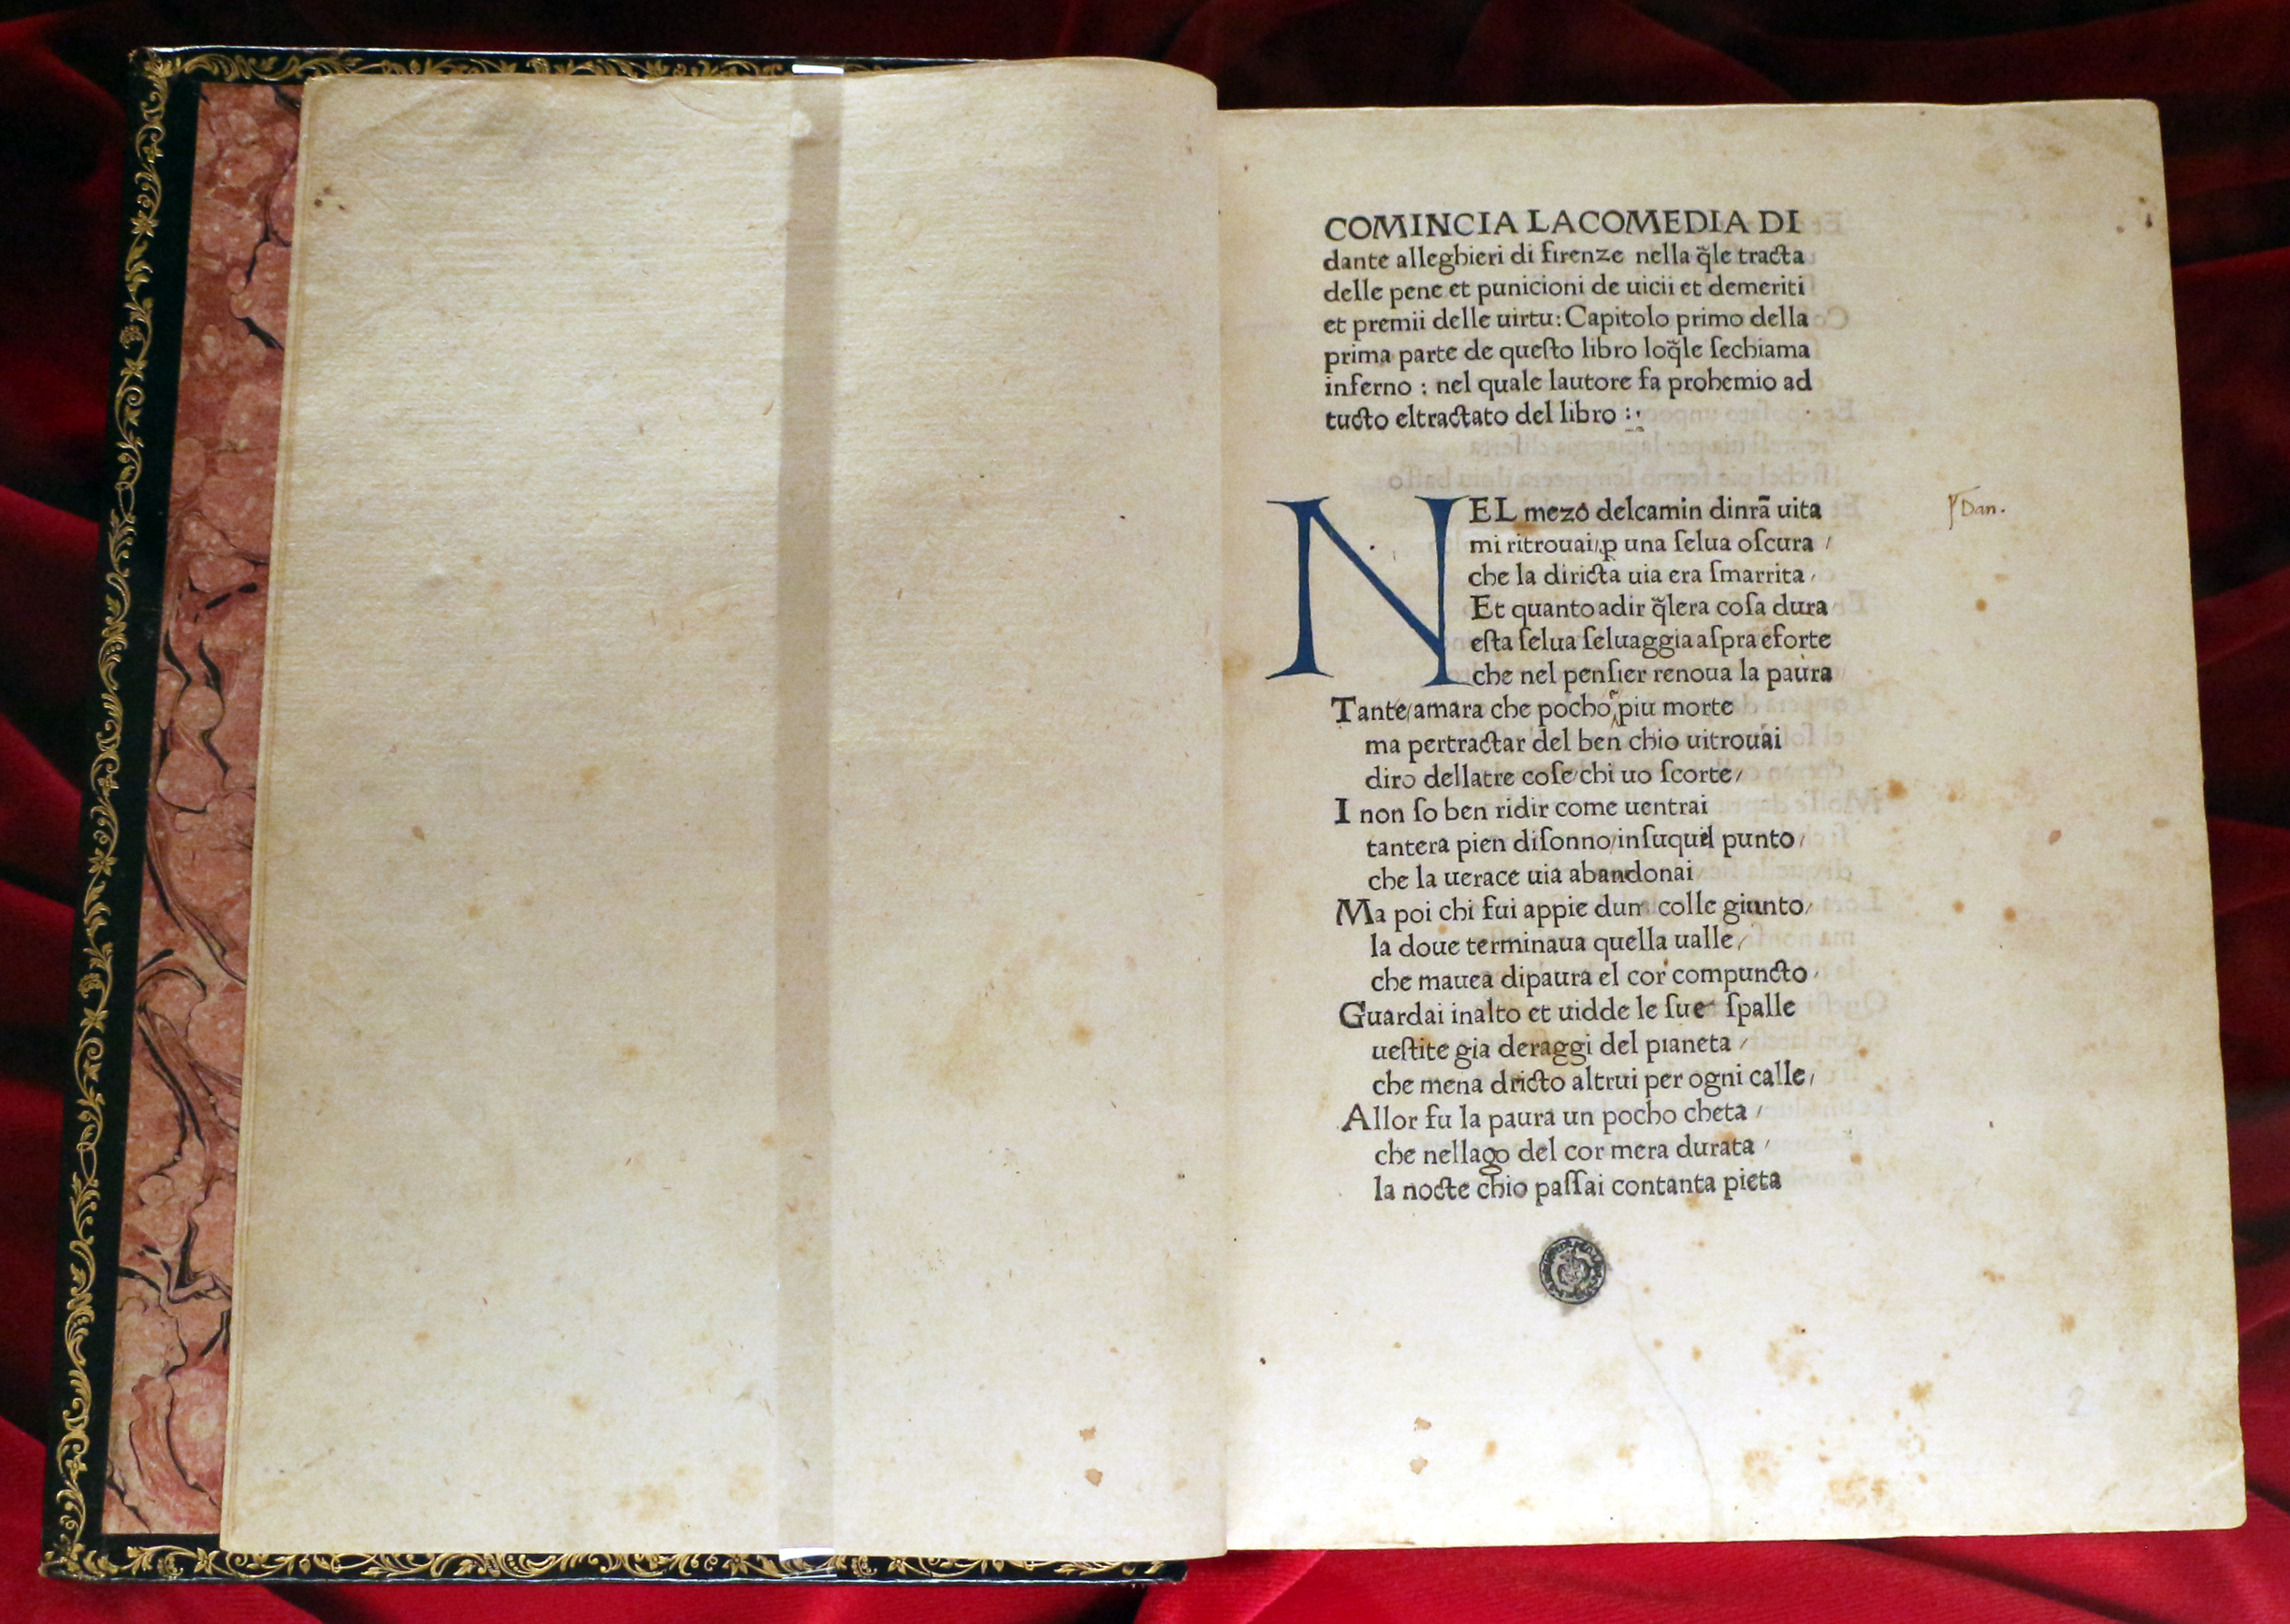 COMINCIA LACOMEDIA DI
dante alleghieri di firenze nella q̃le tracta
delle pene et punicioni de uicii et demeriti
et premii delle uirtu: Capitolo primo della
prima parte de queſto libro loq̃le ſechiama
inferno : nel quale lautore fa prohemio ad
tucto eltractato del libro :.
NEL mezo delcamin dinrã uita
mi ritrouai p una ſelua oſcura /
che la diricta uia era ſmarrita /
Et quanto adir q̃lera coſa dura
eſta ſelua ſeluaggia aſpra eforte
che nel penſier renoua la paura
Tante/amara che pocho piu morte
ma pertractar del ben chio uitrouai
diro dellatre coſe/chi uo ſcorte/
I non ſo ben ridir come uentrai
tantera pien diſonno/inſuquel punto/
che la uerace uia abandonai
Ma poi chi fui appie dum colle giunto/
la doue terminaua quella ualle/
che mauea dipaura el cor compuncto/
Guardai inalto et uidde le ſue ſpalle
ueſtite gia deraggi del pianeta /
che mena dricto altrui per ogni calle/
Allor fu la paura un pocho cheta /
che nellago del cor mera durata /
la nocte chio paſſai contanta pieta
Dan.
2